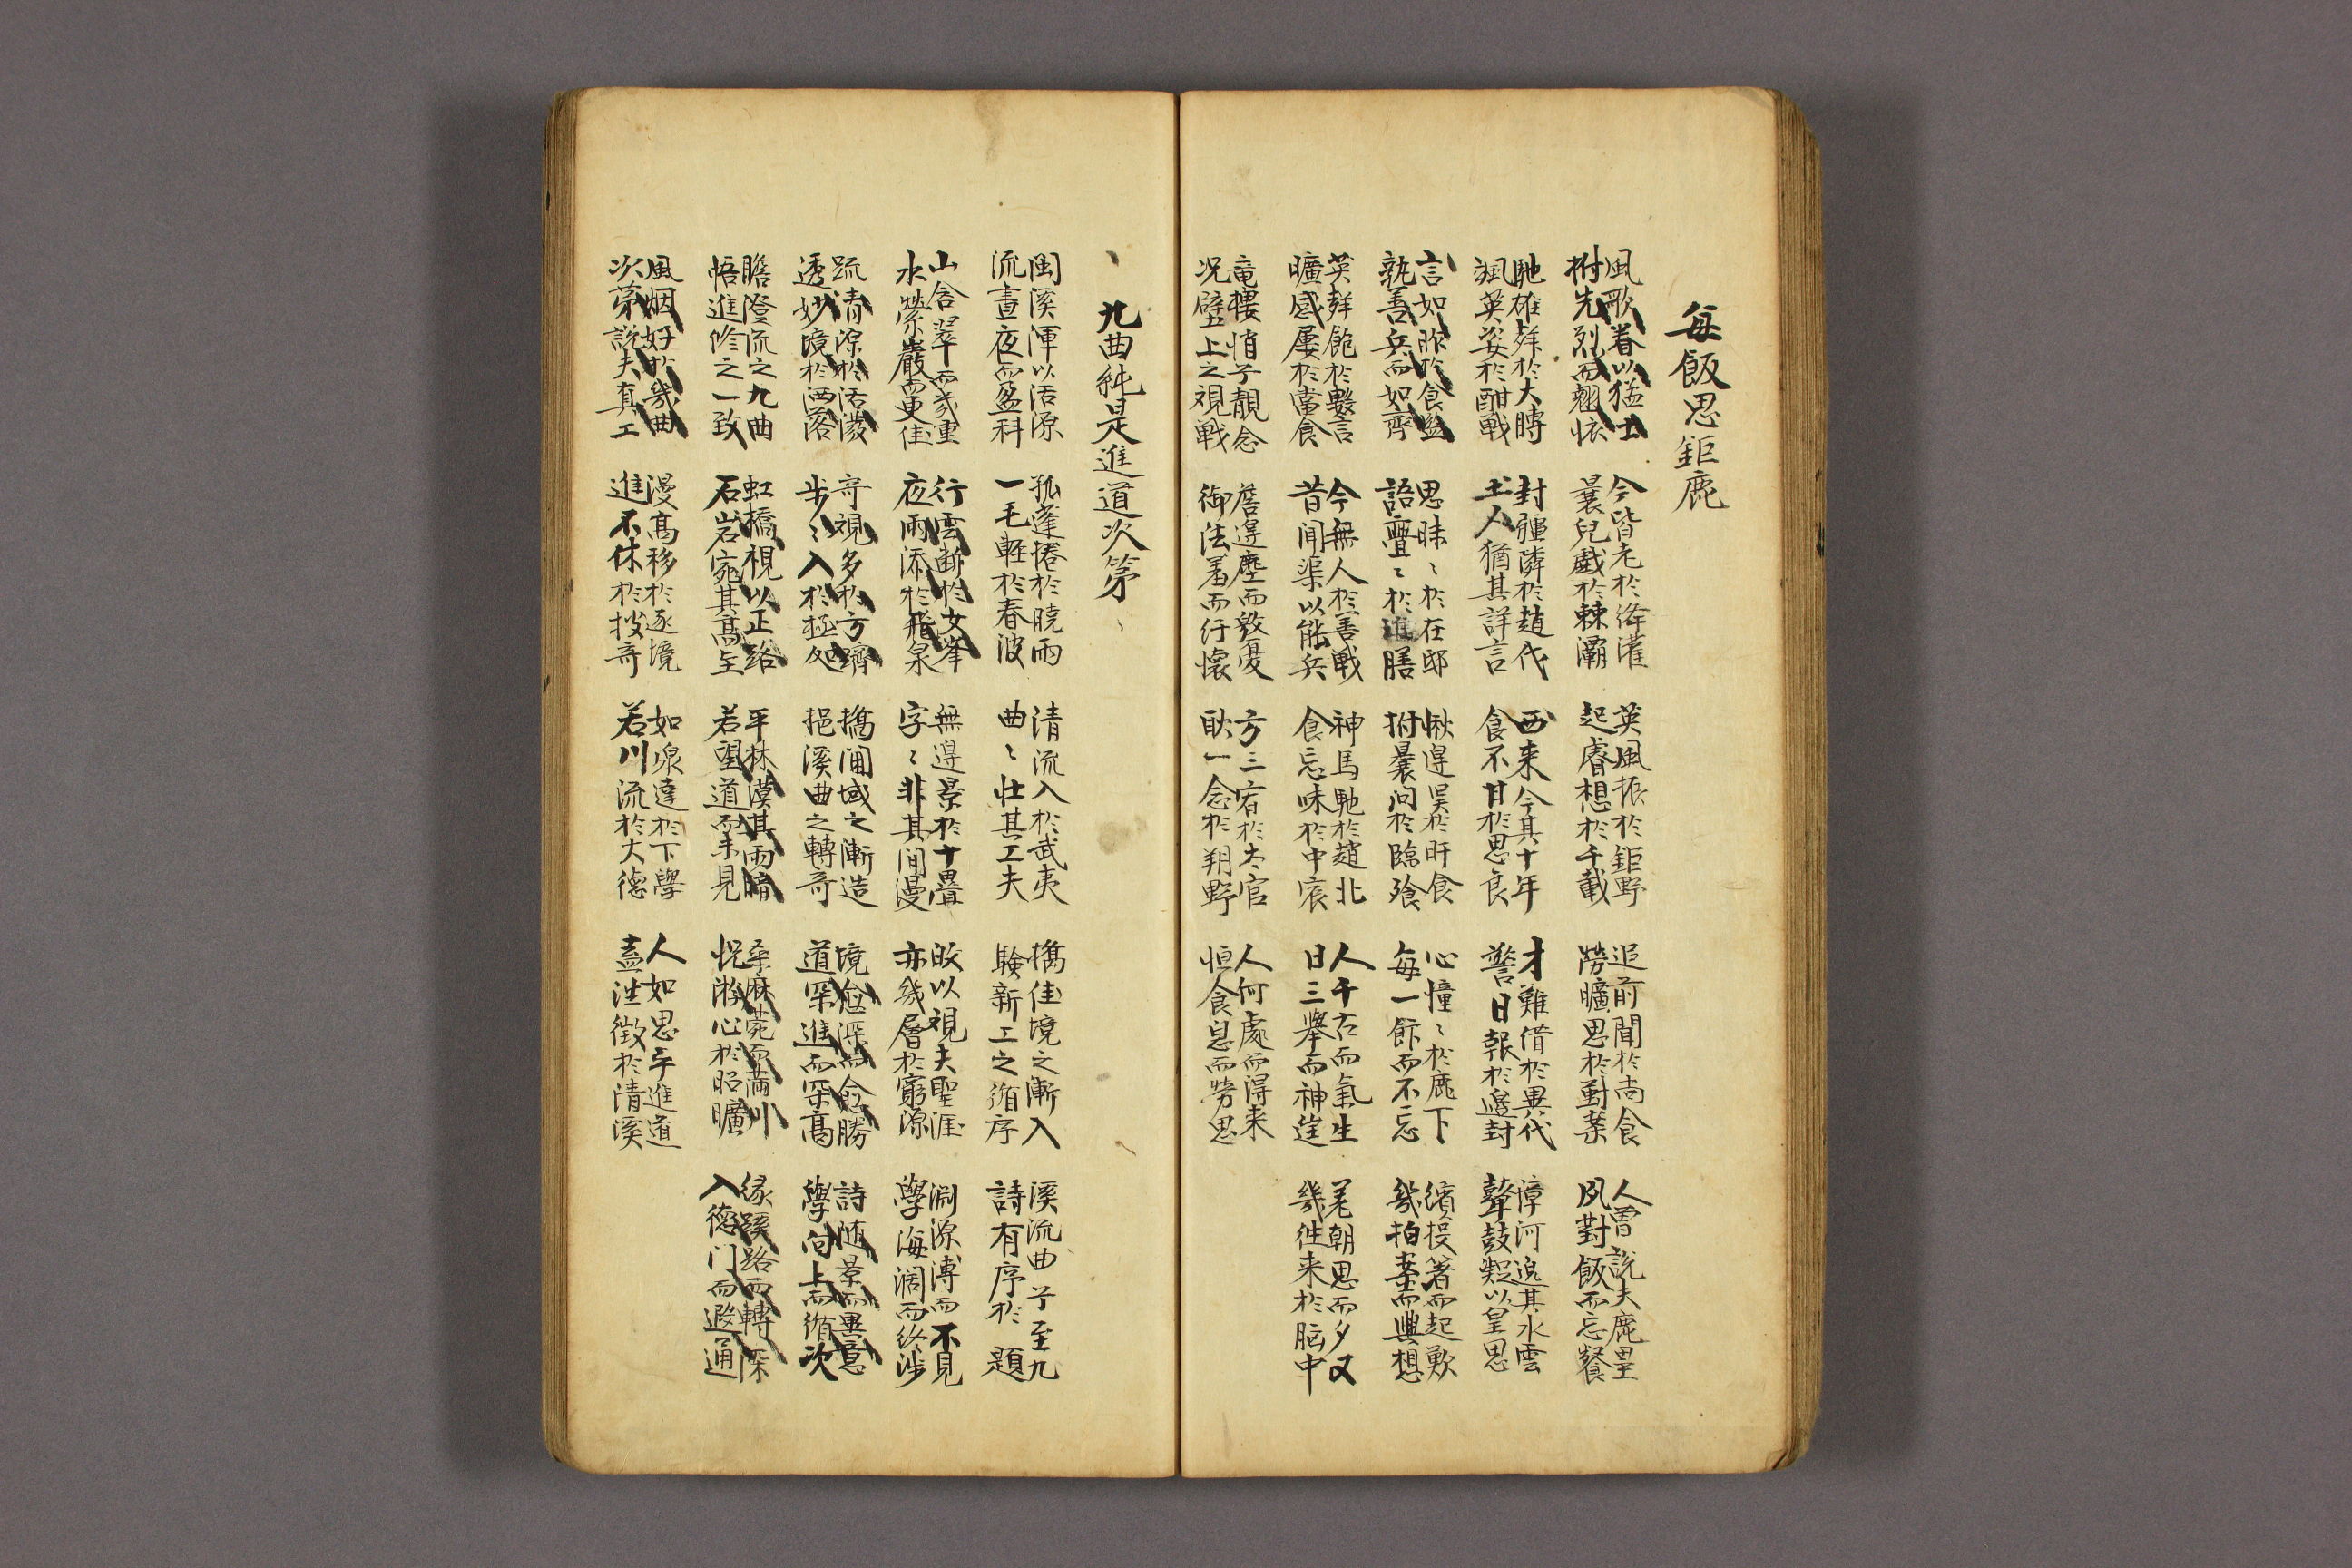 每飯思鉅鹿
風歌眷以猛士
拊先烈而翹懷
今皆老於絳灌
曩兒戲於棘灞
英風振於鉅野
起睿想於千載
追前聞於尚食
勞曠思於對案
人曾說夫鹿壘
夙對飯而忘餐
馳雄於大
颯英姿於酣戰
封疆隣於趙代
士人猶其詳言
西来今其十年
食不甘於思良
才難借於異代
警日報於邊封
漳河邈其水雲
聲鼓髣以皇思
言如昨於食監
孰善兵而如齊
思昧〻於在邸
語亹〻於進膳
愀遑吴於旰食
拊曩問於臨飱
心憧〻於鹿下
每一飰而不忘
纔投箸而起歎
幾拍案而興想
英飽於數言
曠感屢於當食
今無人於善戰
昔聞渠以能兵
神馬馳於趙北
食忘味於中宸
人千古而氣生
日三擧而神逞
羌朝思而夕又
幾往来於脳中
竜樓悄予靚念
况壁上之視戰
詹遑塵而敦憂
御法羞而紆懷
方三宥於太官
耿一念於朔野
人何處而得来
恒食息而勞思
九曲純是進道次第
閩溪渾以活源
流晝夜而盈科
孤蓬捲於曉雨
一毛輕於春波
清流入於武夷
曲〻壯其工夫
擕佳境之漸入
験新工之循序
溪流曲乎至九
詩有序於題
山含翠而幾重
水縈巖而更佳
行雲斷於女峯
夜雨添於飛泉
無遑景於十疊
字〻非其間漫
皎以視夫聖涯
亦幾層於窮源
淵源溥而不見
學海濶而終涉
䟽清源於活潑
透妙境於洒落
奇視多於方躋
步〻入於極處
擕洞域之漸造
挹溪曲之轉奇
境愈深而愈勝
道罙進而罙高
詩随景而異意
學向上而循次
瞻澄流之九曲
悟進修之一致
虹橋視以正路
石岩宛其高至
平林漠其雨暗
若望道而未見
桑麻菀而滿川
怳游心於昭曠
縁蹊路而轉深
入德门而遐通
風烟好於幾曲
次第說夫真工
漫高移於逐境
進不休於搜奇
如泉達於下學
若川流於大德
人如思乎進道
盍注徴於清溪